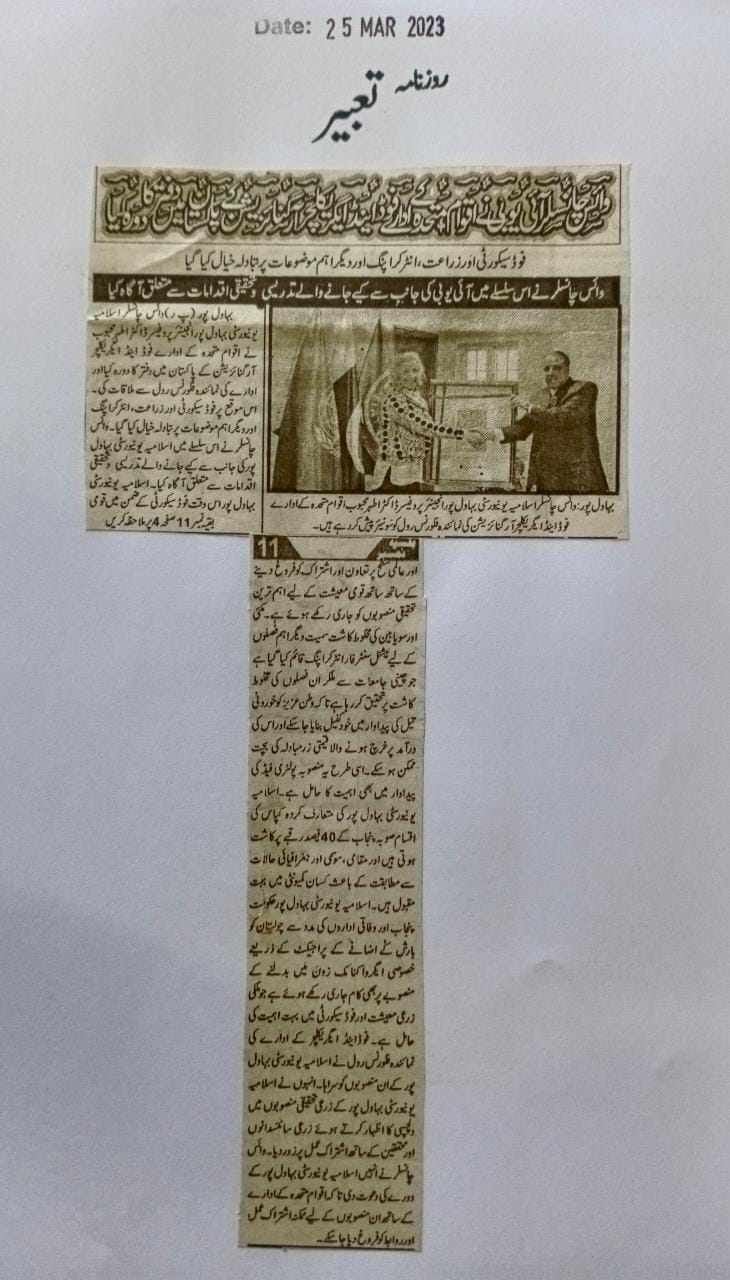 Date: 25 MAR 2023
روزنامہ تعبیر
وائس چانسلر آئی یو بی نے اقوام متحدہ کے ادارے فوڈ اینڈ ایگریکلچر آرگنائزیشن کے پاکستان میں دفتر کا دورہ کیا
فوڈ سیکورٹی اور زراعت، انٹرکراپنگ اور دیگر اہم موضوعات پر تبادلہ خیال کیا گیا
وائس چانسلر نے اس سلسلے میں آئی یو بی کی جانب سے کیے جانے والے تدریسی و تحقیقی اقدامات سے متعلق آگاہ کیا
بہاول پور (پ ر) وائس چانسلر اسلامیہ
یونیورسٹی بہاول پور انجینئر پروفیسر ڈاکٹر اطہر محبوب
نے اقوام متحدہ کے ادارے فوڈ اینڈ ایگریکلچر
آرگنائزیشن کے پاکستان میں دفتر کا دورہ کیا اور
ادارے کی نمائندہ فلورنس رول سے ملاقات کی۔
اس موقع پر فوڈ سیکورٹی اور زراعت، انٹرکراپنگ
اور دیگر اہم موضوعات پر تبادلہ خیال کیا گیا۔ وائس
چانسلر نے اس سلسلے میں اسلامیہ یونیورسٹی بہاول
پور کی جانب سے کیے جانے والے تدریسی و تحقیقی
اقدامات سے متعلق آگاہ کیا۔ اسلامیہ یونیورسٹی
بہاول پور اس وقت فوڈ سیکورٹی کے ضمن میں قومی
بقیہ نمبر 11 صفحہ 4 پر ملاحظہ کریں
بہاول پور: وائس چانسلر اسلامیہ یونیورسٹی بہاول پور انجینئر پروفیسر ڈاکٹر اطہر محبوب اقوام متحدہ کے ادارے
فوڈ اینڈ ایگریکلچر آرگنائزیشن کی نمائندہ فلورنس رول کو سوینئر پیش کر رہے ہیں۔
11
اور عالمی سطح پر تعاون اور اشتراک کو فروغ دینے
کے ساتھ ساتھ قومی معیشت کے لیے اہم ترین
تحقیقی منصوبوں کو جاری رکھے ہوئے ہے۔ مکئی
اور سویابین کی مخلوط کاشت سمیت دیگر اہم فصلوں
کے لیے نیشنل سنٹر فار انٹرکراپنگ قائم کیا گیا ہے
جو چینی جامعات سے ملکر ان فصلوں کی مخلوط
کاشت پر تحقیق کر رہا ہے تاکہ وطن عزیز کو خوردنی
تیل کی پیداوار میں خود کفیل بنایا جا سکے اور اس کی
درآمد پر خرچ ہونے والا قیمتی زرمبادلہ کی بچت
ممکن ہو سکے۔ اسی طرح یہ منصوبہ پولٹری فیڈ کی
پیداوار میں بھی اہمیت کا حامل ہے۔ اسلامیہ
یونیورسٹی بہاول پور کی متعارف کردہ کپاس کی
اقسام صوبہ پنجاب کے 40 فیصد رقبے پر کاشت
ہوتی ہیں اور مقامی، موسمی اور جغرافیائی حالات
سے مطابقت کے باعث کسان کمیونٹی میں بہت
مقبول ہیں۔ اسلامیہ یونیورسٹی بہاول پور حکومت
پنجاب اور وفاقی اداروں کی مدد سے چولستان کو
بارش کے اضافے کے پراجیکٹ کے ذریعے
خصوصی ایگرو اکنامک زون میں بدلنے کے
منصوبے پر بھی کام جاری رکھے ہوئے ہے جو ملکی
زرعی معیشت اور فوڈ سیکورٹی میں بہت اہمیت کی
حامل ہے۔ فوڈ اینڈ ایگریکلچر کے ادارے کی
نمائندہ فلورنس رول نے اسلامیہ یونیورسٹی بہاول
پور کے ان منصوبوں کو سراہا۔ انہوں نے اسلامیہ
یونیورسٹی بہاول پور کے زرعی تحقیقی منصوبوں میں
دلچسپی کا اظہار کرتے ہوئے زرعی سائنسدانوں
اور محققین کے ساتھ اشتراک عمل پر زور دیا۔ وائس
چانسلر نے انہیں اسلامیہ یونیورسٹی بہاول پور کے
دورے کی دعوت دی تاکہ اقوام متحدہ کے ادارے
کے ساتھ ان منصوبوں کے لیے ممکنہ اشتراک عمل
اور روابط کو فروغ دیا جا سکے۔